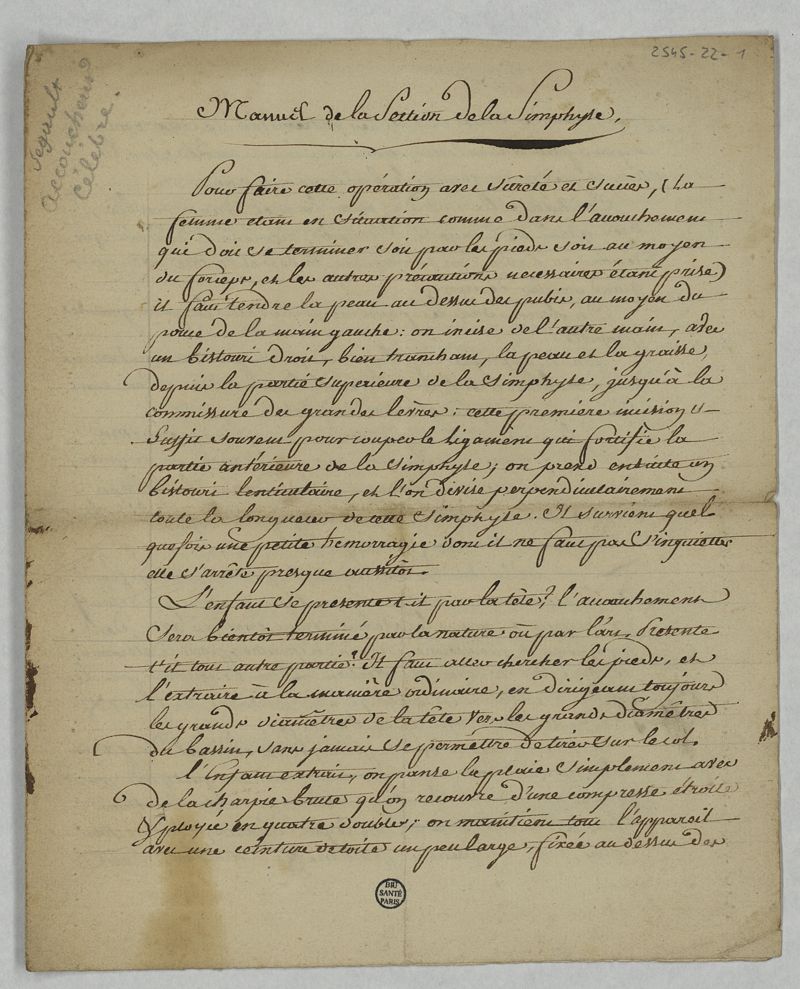 2545-22-1
Segault
accoucheur
Célèbre.
Manuël de la Section de la Simphyse.
Pour faire cette opération avec sûreté et succès, (La
femme etant en situation comme dans l'accouchement
qui doit se terminer soit par les pieds soit au moyen
du forceps, et les autres précautions necessaires étant prise)
il faut tendre la peau au dessus des pubis, au moyen du
pouce de la main gauche: on incise de l'autre main, avec
un bistouri droit, bien tranchant, la peau et la graisse,
depuis la partie superieure de la simphyse, jusqu'à la
commissure des grandes levres: cette première incision
Suffit souvent pour couper le ligament qui fortifie la
partie antérieure de la simphyse; on prend ensuite un
bistouri lenticulaire, et l'on divise perpendiculairement
toute la longueur de cette simphyse. Il survient quel-
quefois une petite hemorragie dont il ne faut pas s'inquietter
elle s'arrête presque aussitôt.
L'enfant se presente t-il par la tête? l'accouchement
Sera bientôt terminé par la nature où par l'art. Présente
t-il tout autre partie? Il faut aller chercher les pieds, et
l'extraire à la manière ordinaire, en dirigeant toujours
les grands diamêtres de la tête vers les grands diamêtres
du bassin, sans jamais se permêttre de tirer sur le col.
l'Enfant extrait, on panse la plaie simplement avec
de la charpie brute qu'on recouvre d'une compresse étroite
& ployée en quatre doubles; on maintient tout l'appareil
avec une ceinture de toile un peu large, fixée au dessus des
BIU
SANTÉ
PARIS